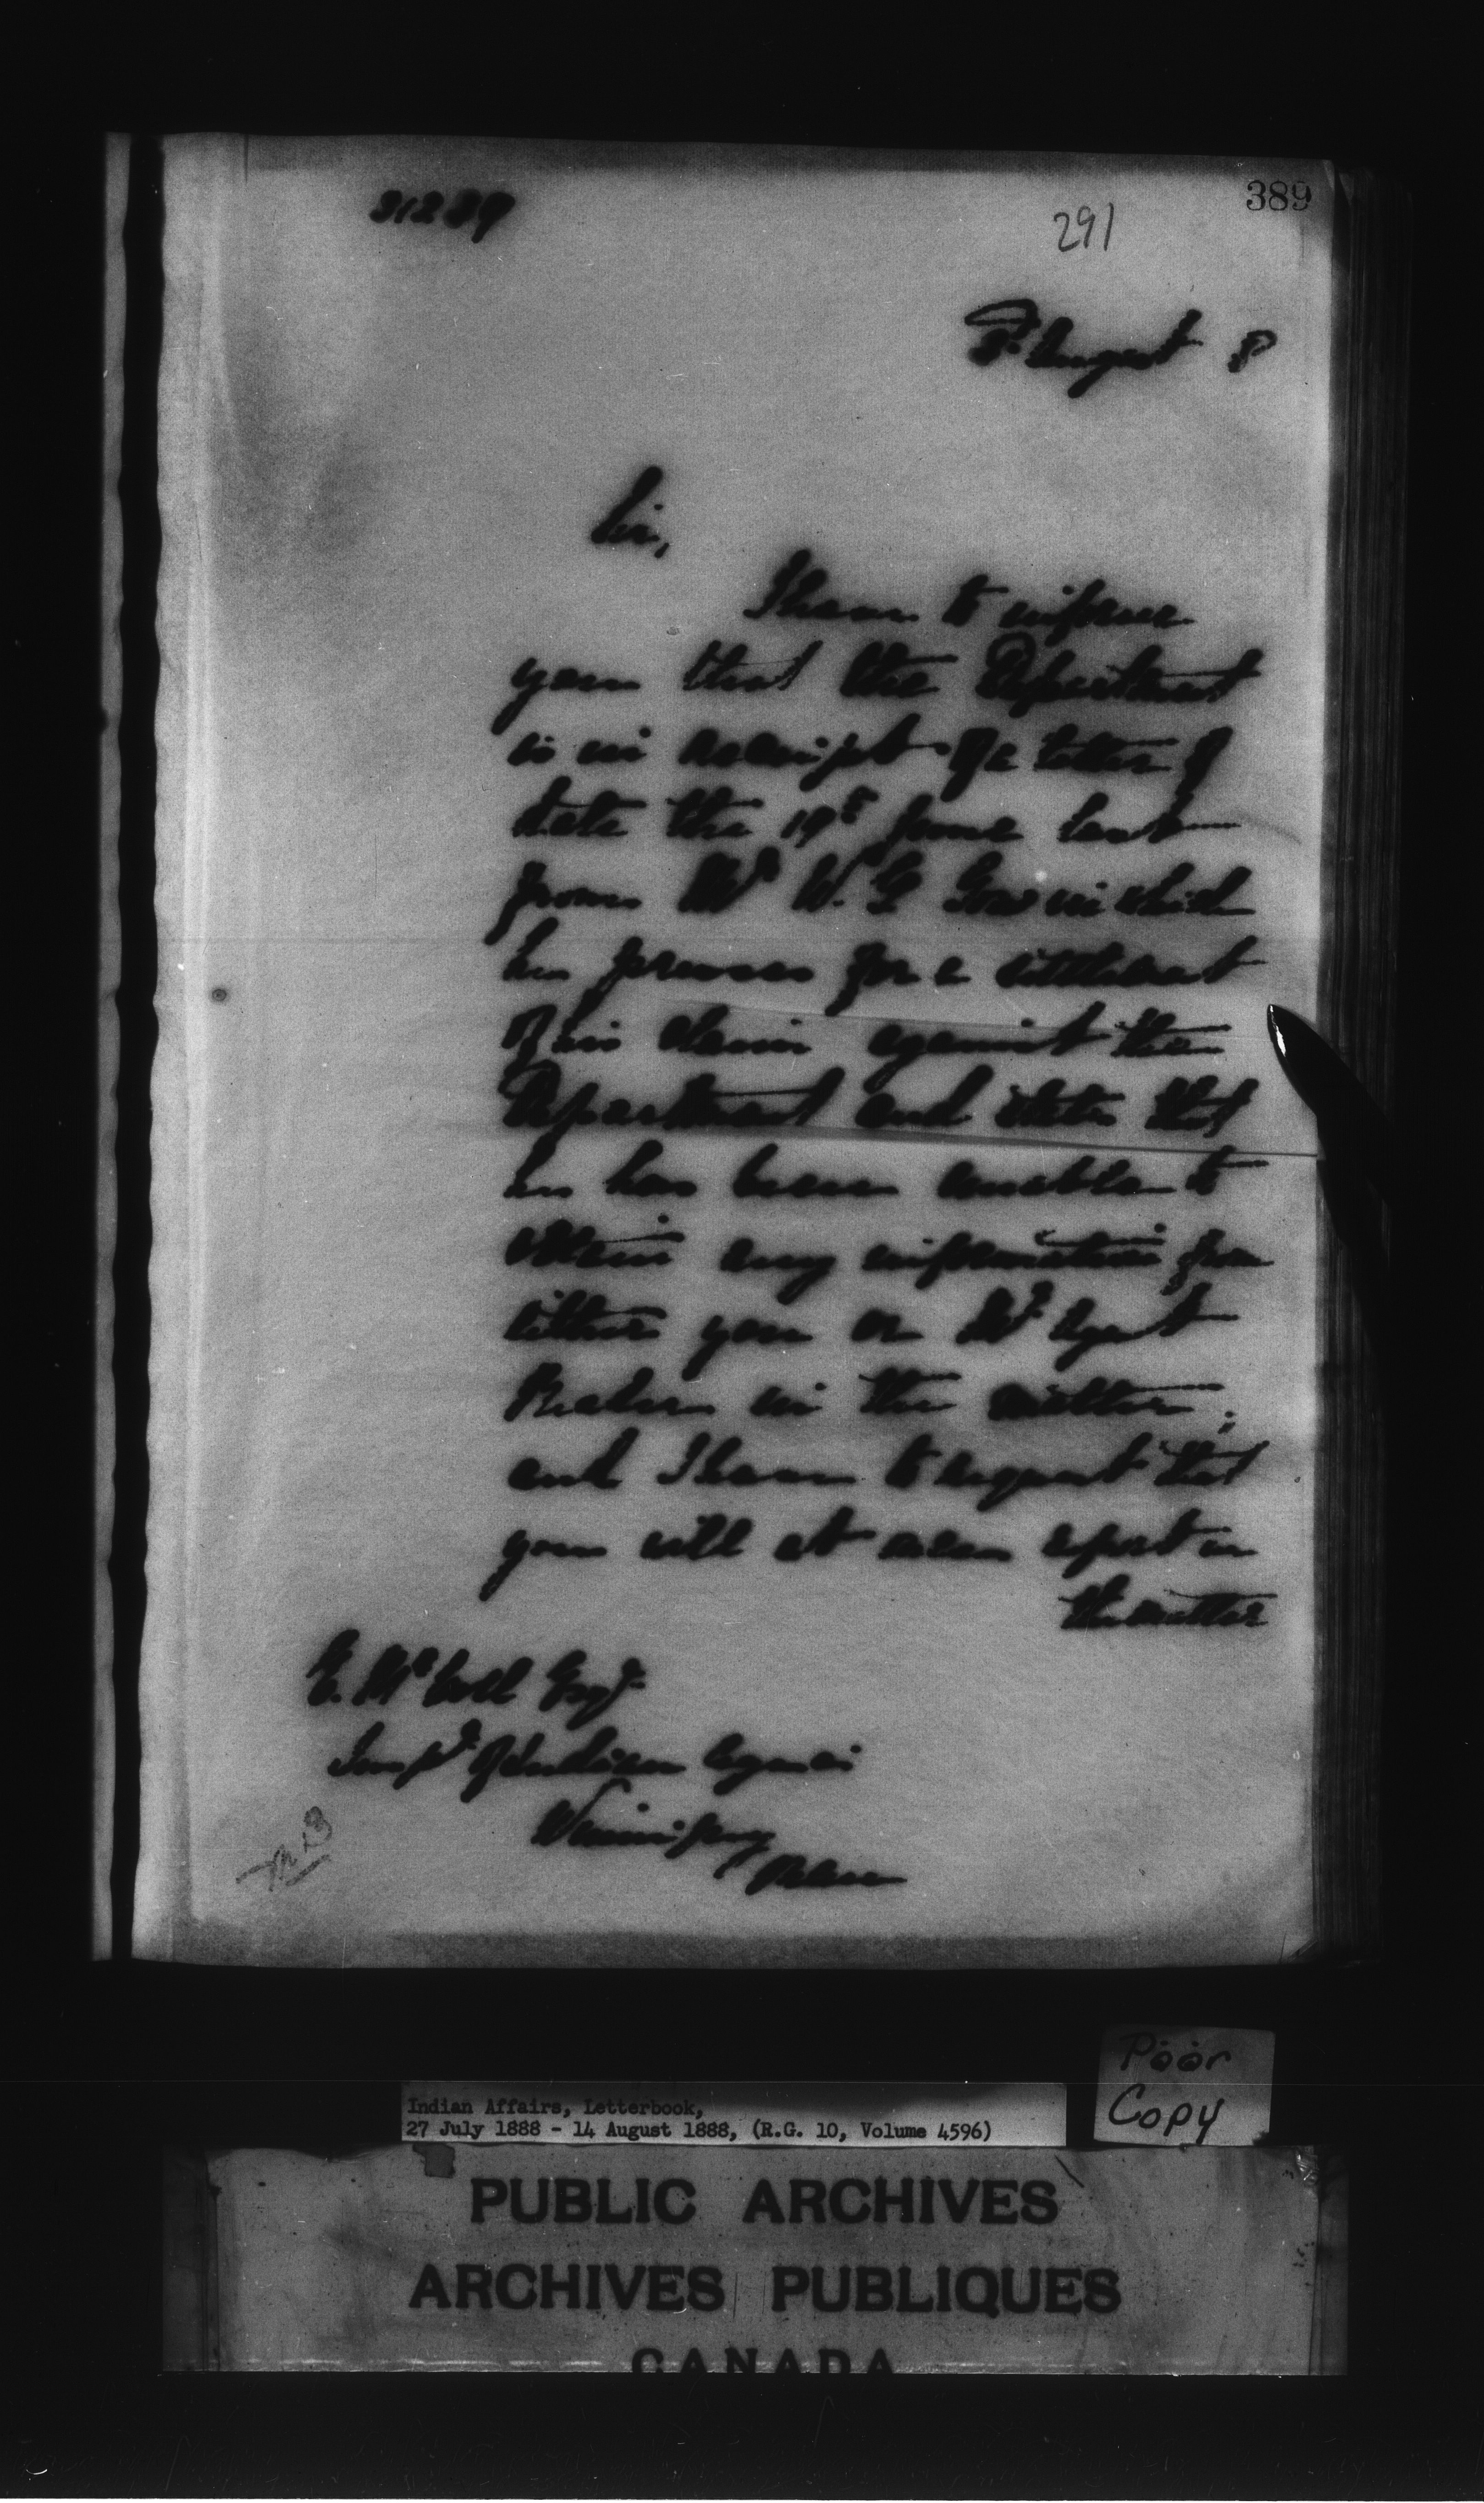 31239
389
291
8. August 8
Sir,
I have to inform
you that the Department
is in receipt of a letter of
date the 19th June last
from Mr W. G. in which
he presses for a settlement
of his claim against the
Department and states that
he has been unable to
obtain any information from
either you or Mr Agent
in the matter;
and I have to request that
you will at once report on
the matter
E. McColl Esqr.
Inspr. of Indian Agencies
Winnipeg
Man
Poor
Copy
Indian Affairs, Letterbook,
27 July 1888 - 14 August 1888, (R.G. 10, Volume 4596)
PUBLIC ARCHIVES
ARCHIVES PUBLIQUES
CANADA